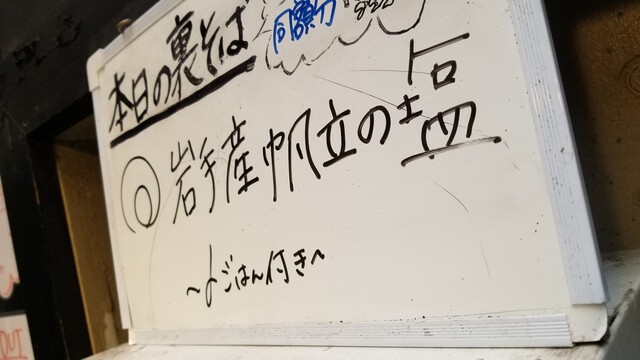 本日の裏そば
同額分
◎岩手産帆立の塩
～小ごはん付き～